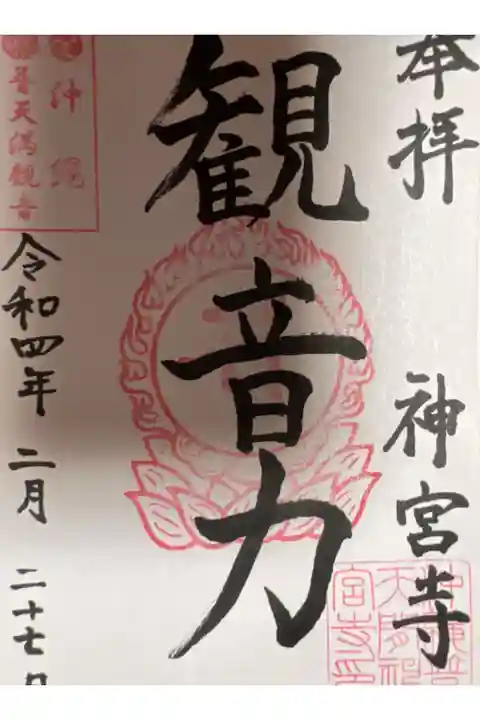 奉拝 神宮寺
観音力
沖縄
普天満観音
令和四年 二月 二十七日